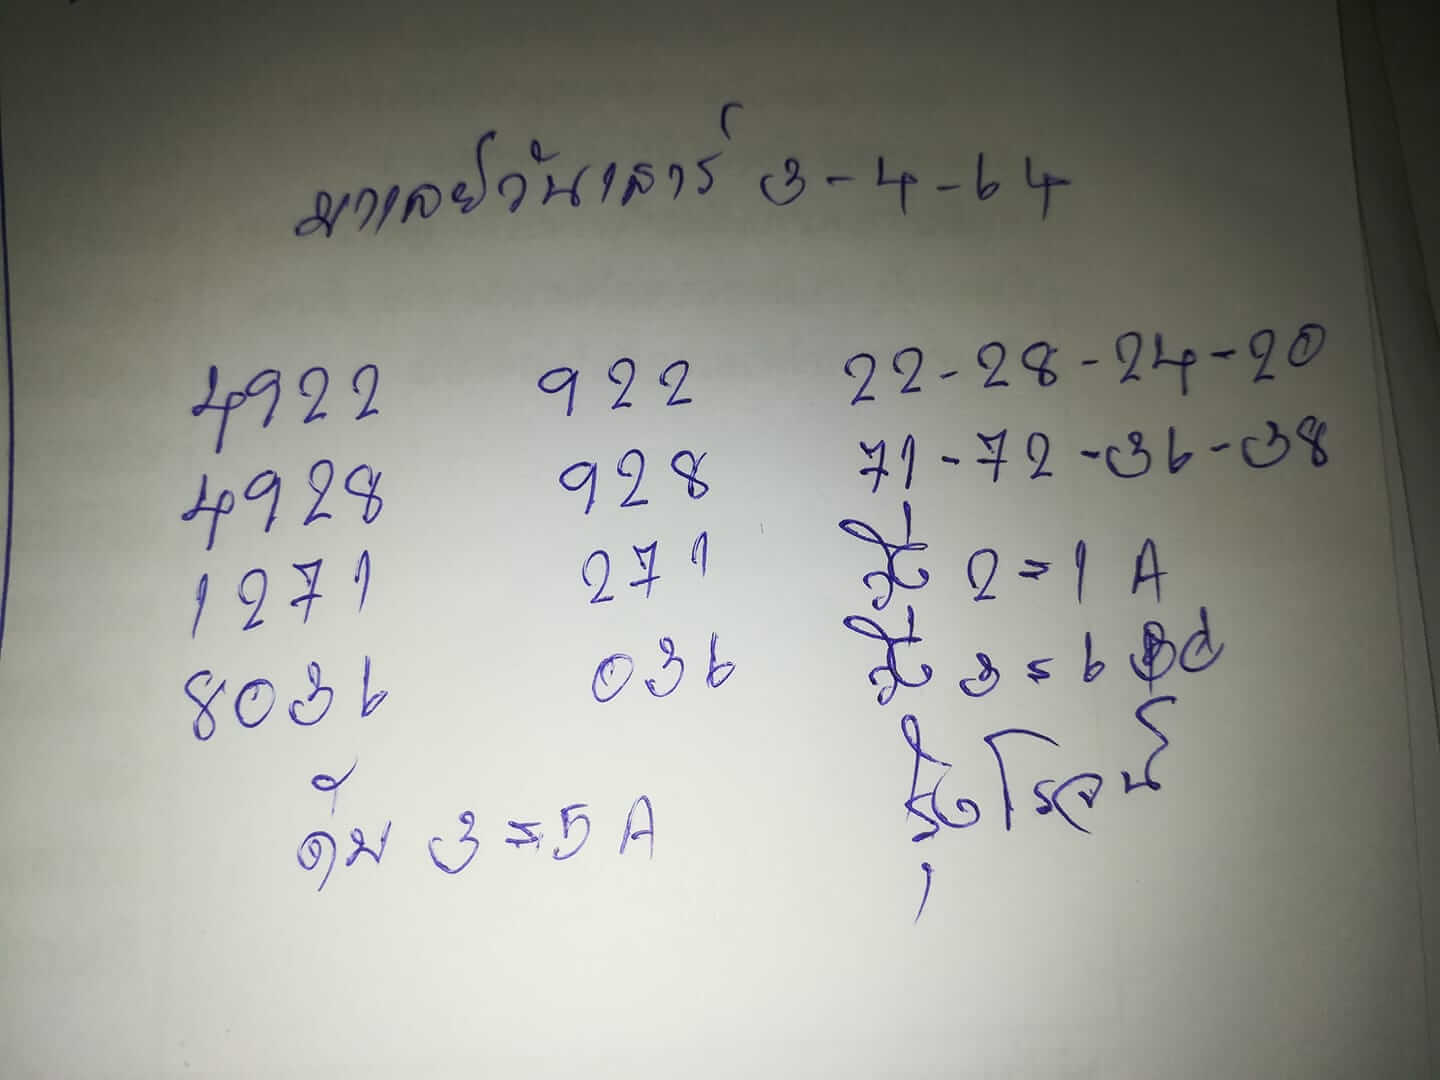 มาเลย์วันเสาร์ 3-4-64
4922 922 22-28-24-20
4928 928 71-72-36-38
1271 271 2=1 A
8036 036 3=6
ดับ 3=5 A โรจน์